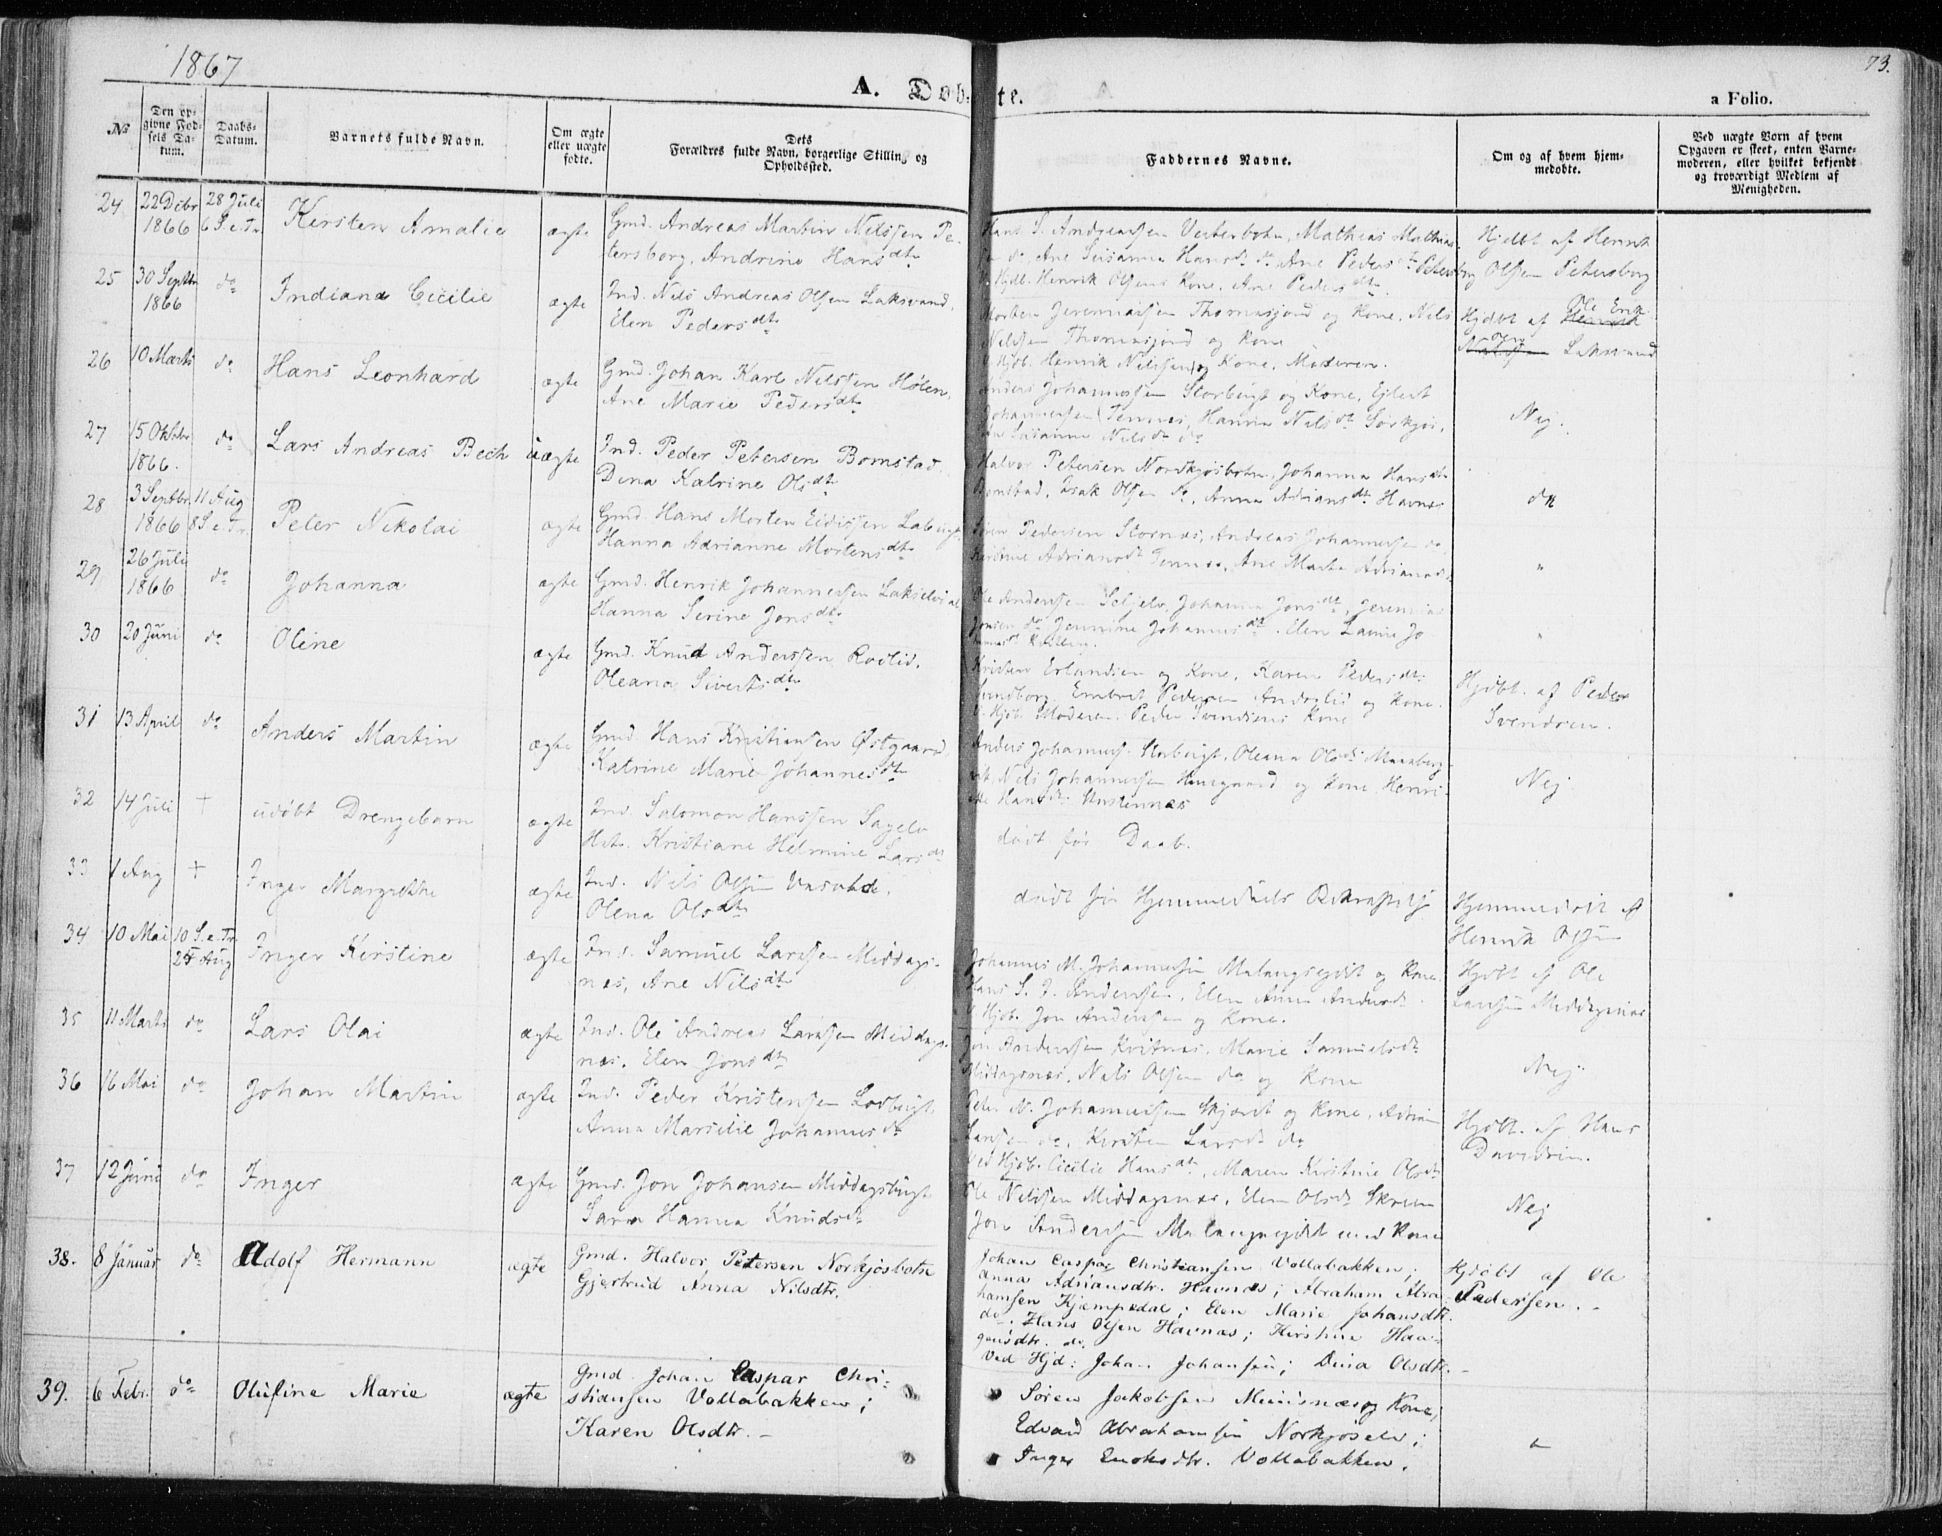 1867
73.
A. Døbte.
a Folio.
No
Den opgivne Fødsels Datum.
Daabs-Datum.
Barnets fulde Navn.
Om ægte eller uægte fødte.
Dets Forældres fulde Navn, borgerlige Stilling og Opholdssted.
Faddernes Navne.
Om og af hvem hjemmedøbte.
Ved uægte Børn af hvem Opgaven er skeet, enten Barnemoderen, eller hvilket bekjendt og troværdigt Medlem af Menigheden.
24 22 Debr 1866 28 Juli 6 S. e. Tr. Kersten Amalie ægte Gmd. Andreas Martin Nilssen Petersborg, Andrine Hansdtr
Hans S. Andreassen Vesterbotn, Mathias Mathias-
sen do, Ane Susanna Hansdtr do, Ane Pedersdtr Petersborg
V. Hjdb. Henrik Olsens Kone, Ane Pedersdtr
Hjdbt af Henrik Olsen Petersborg
25 30 Septbr 1866 do Indiana Cecilie ægte Ind. Nils Andreas Olsen Laksvand, Elen Pedersdtr
Morten Jeremiassen Thomasjord og Kone, Nils
Nilssen Thomasjord og Kone
V. Hjdb. Henrik Nilssen og Kone, Moderen.
Hjdbt af Ole Erik Laksvand
26 10 Marts do Hans Leonhard ægte Gmd. Johan Karl Nilssen Holen, Ane Marie Pedersdtr
Anders Johannessen Storbugt og Kone, Ejlert
Johannessen Tennes, Hanna Nilsdtr Sørkjos,
Susanna Nilsdtr do
Nej.
27 15 Oktbr 1866. do Lars Andreas Bech uægte Ind. Peder Petersen Bomstad, Dina Katrine Olsdtr
Halvor Petersen Nordkjosbotn, Johanna Hansdtr
Bomstad, Isak Olsen do, Anna Adriansdtr Havnes
do
28 3 Septbr. 1866 11 Aug 8 S. e. Tr. Peter Nikolai ægte Gmd. Hans Morten Eidissen Labugt, Hanna Adrianne Mortensdtr
Søren Pedersen Stornes, Andreas Johannessen do
Kirstine Adriansdtr Tennes, Ane Marta Adriansdtr
"
29 26 Juli 1866 do Johanna ægte Gmd. Henrik Johannessen Lakselvdal Hanna Serine Jonsdtr
Ole Anderssen Seljelv, Johanna Jonsdtr, Jeremias
Jonsen do, Jennine Johannesdtr, Elen Lavine Jo
"
30 20 Juni do Oline ægte Gmd. Knud Anderssen Rovlid, Oleana Sivertsdtr
Kristen Erlandsen og Kone, Karen Pedersdtr
Svendborg, Embret Pedersen Andslid og Kone.
V. Hjb. Moderen, Peder Svendsens Kone
Hjdbt. af Peder Svendsen.
31 13 April do Anders Martin ægte Gmd. Hans Kristiansen Østgaard, Katrine Marie Johannesdtr
Anders Johanness. Storbugt, Oleana Olsdtr Maasberg-
vik, Nils Johannessen Huusgaard og Kone, Henri-
ette Hansdtr
Nej
32 14 Juli + udøbt Drengebarn ægte Ind. Salomon Hanssen Sagelv Hst. Kristiane Helmine Larsdtr
død før Daab.
33 1 Aug + Inger Margrethe ægte Ind. Nils Olsen Olena Olsdtr
død før Hjemmedaabs Bekræftelse
Hjemmedøbt af Henrik Olsen
34 10 Mai 10 S. e. Tr. 25 Aug Inger Kirstine ægte Ind. Samuel Larssen Middagsnes, Ane Nilsdtr
Johannes M. Johannessen Malangseidet og Kone
Hans S. J. Anderssen, Elen Anna Andersdtr
V. Hjb. Jon Anderssen og Kone.
Hjdbt af Ole Larssen Middagsnes
35 11 Marts do Lars Olai ægte Ind. Ole Andreas Larssen Middagsnes, Elen Jonsdtr
Jon Anderssen Kvitnes, Marie Samuelsdtr
Middagsnes, Nils Olsen do og Kone
Nej
36 16 Mai do Johan Martin ægte Ind. Peder Kristensen Lodbugt, Anna Marselie Johannesdtr
Peter N. Johannessen Skjæret og Kone, Adrian
Larssen do, Kirsten Larsdtr do
Ved Hjdb. Cicilie Hansdtr, Maren Kirstine Olsdtr
Hjdbt. af Hans Davidsen.
37 12 Juni do Inger ægte Gmd. Jon Johansen Middagsbugt Sara Hanna Knudsdtr
Ole Nilssen Middagsnes, Elen Olsdtr
Jon Anderssen Malangseidet med Kone
Nej
38. 8 Januar do Adolf Hermann ægte Gmd. Halvor Petersen Norkjosbotn Gjertrud Anna Nilsdtr.
Johan Caspar Christiansen Vollabakken;
Anna Adriansdtr. Havnæs; Abraham Abra-
hamsen Kjempedal; Elen Marie Johansdtr.
do, Hans Olsen Havnæs; Kirstine Haa-
gensdtr. do.
Ved Hjd: Johan Johansen; Dina Olsdtr. –
Hjdøbt af Ole Pedersen. –
39. 6 Febr. do Olufine Marie ægte Gmd. Johan Caspar Christiansen Vollabakken; Karen Olsdtr. –
Søren Jakobsen og Kone;
Edvard Abrahamsen Norkjoselv;
Inger Enoksdtr. Vollabakken.